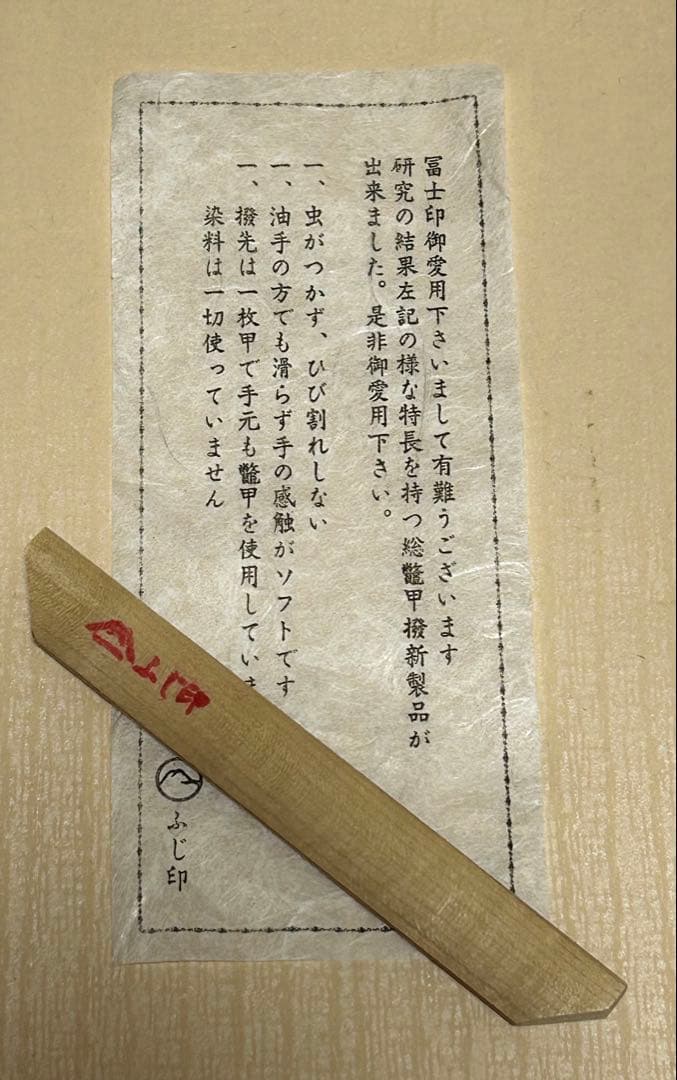 冨士印御愛用下さいまして有難うございます
研究の結果左記の様な特長を持つ総鼈甲撥新製品が
出来ました。是非御愛用下さい。
一、虫がつかず、ひび割れしない
一、油手の方でも滑らず手の感触がソフトです
一、撥先は一枚甲で手元も鼈甲を使用していま
染料は一切使っていません
ふじ印
ふじ印